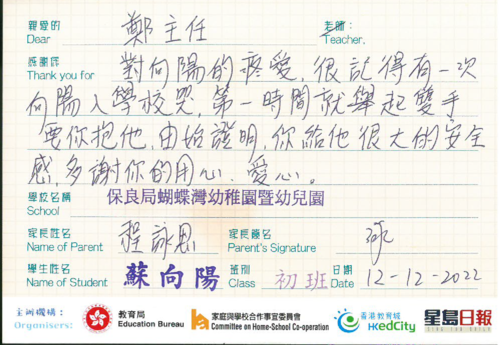 親愛的 鄭主任 老師：
Dear Teacher,
感謝你 對向陽的疼愛，很記得有一次
Thank you for
向陽入學校哭，第一時間就舉起雙手
要你抱他，由始證明，你給他很大的安全
感，多謝你的用心、愛心。
學校名稱 保良局蝴蝶灣幼稚園暨幼兒園
School
家長姓名 程詠恩 家長簽名
Name of Parent Parent's Signature
學生姓名 蘇向陽 班別 初班 日期 12-12-2022
Name of Student Class Date
主辦機構： 教育局 家庭與學校合作事宜委員會 香港教育城 星島日報
Organisers: Education Bureau Committee on Home-School Co-operation HKedCity SING TAO DAILY